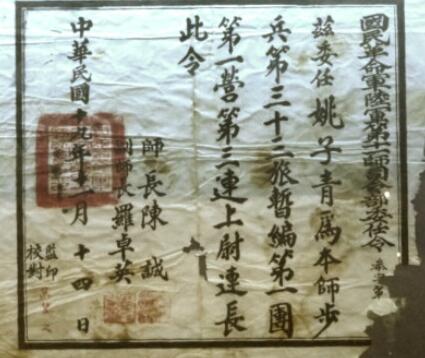 國民革命軍陸軍第十一師司令部委任令
茲委任姚子青為本師步
兵第三十二旅暫編第一團
第一營第三連上尉連長
此令
師長陳誠
副師長羅卓英
中華民國十九年十一月十四日
監印
校對